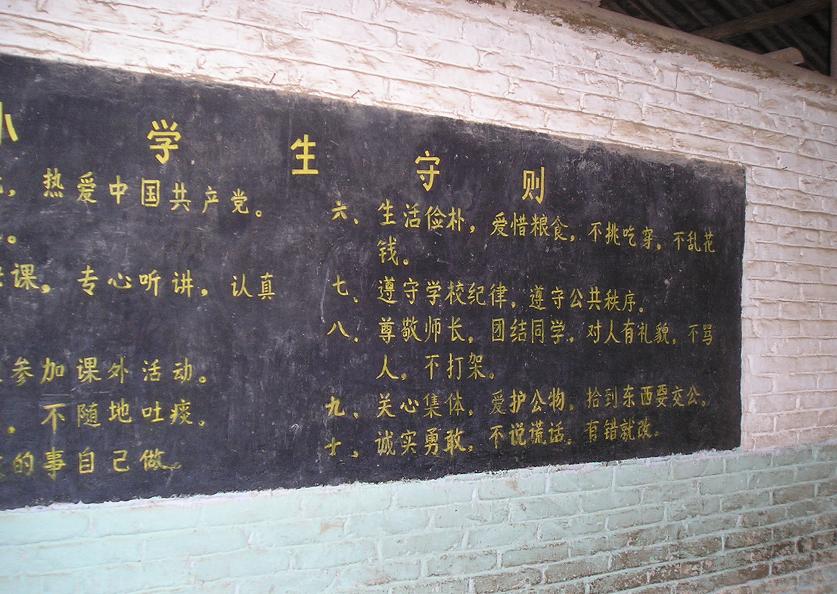 小学生守则
热爱中国共产党。
课，专心听讲，认真
参加课外活动。
，不随地吐痰。
的事自己做。
六、生活俭朴，爱惜粮食，不挑吃穿，不乱花
钱。
七、遵守学校纪律，遵守公共秩序。
八、尊敬师长，团结同学，对人有礼貌，不骂
人，不打架。
九、关心集体，爱护公物，拾到东西要交公。
十、诚实勇敢，不说谎话。有错就改。